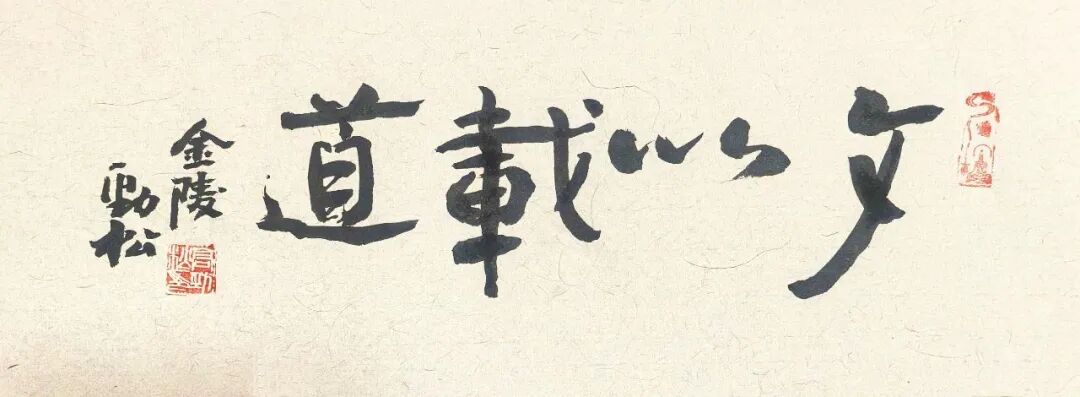 文以載道
金陵
勁松